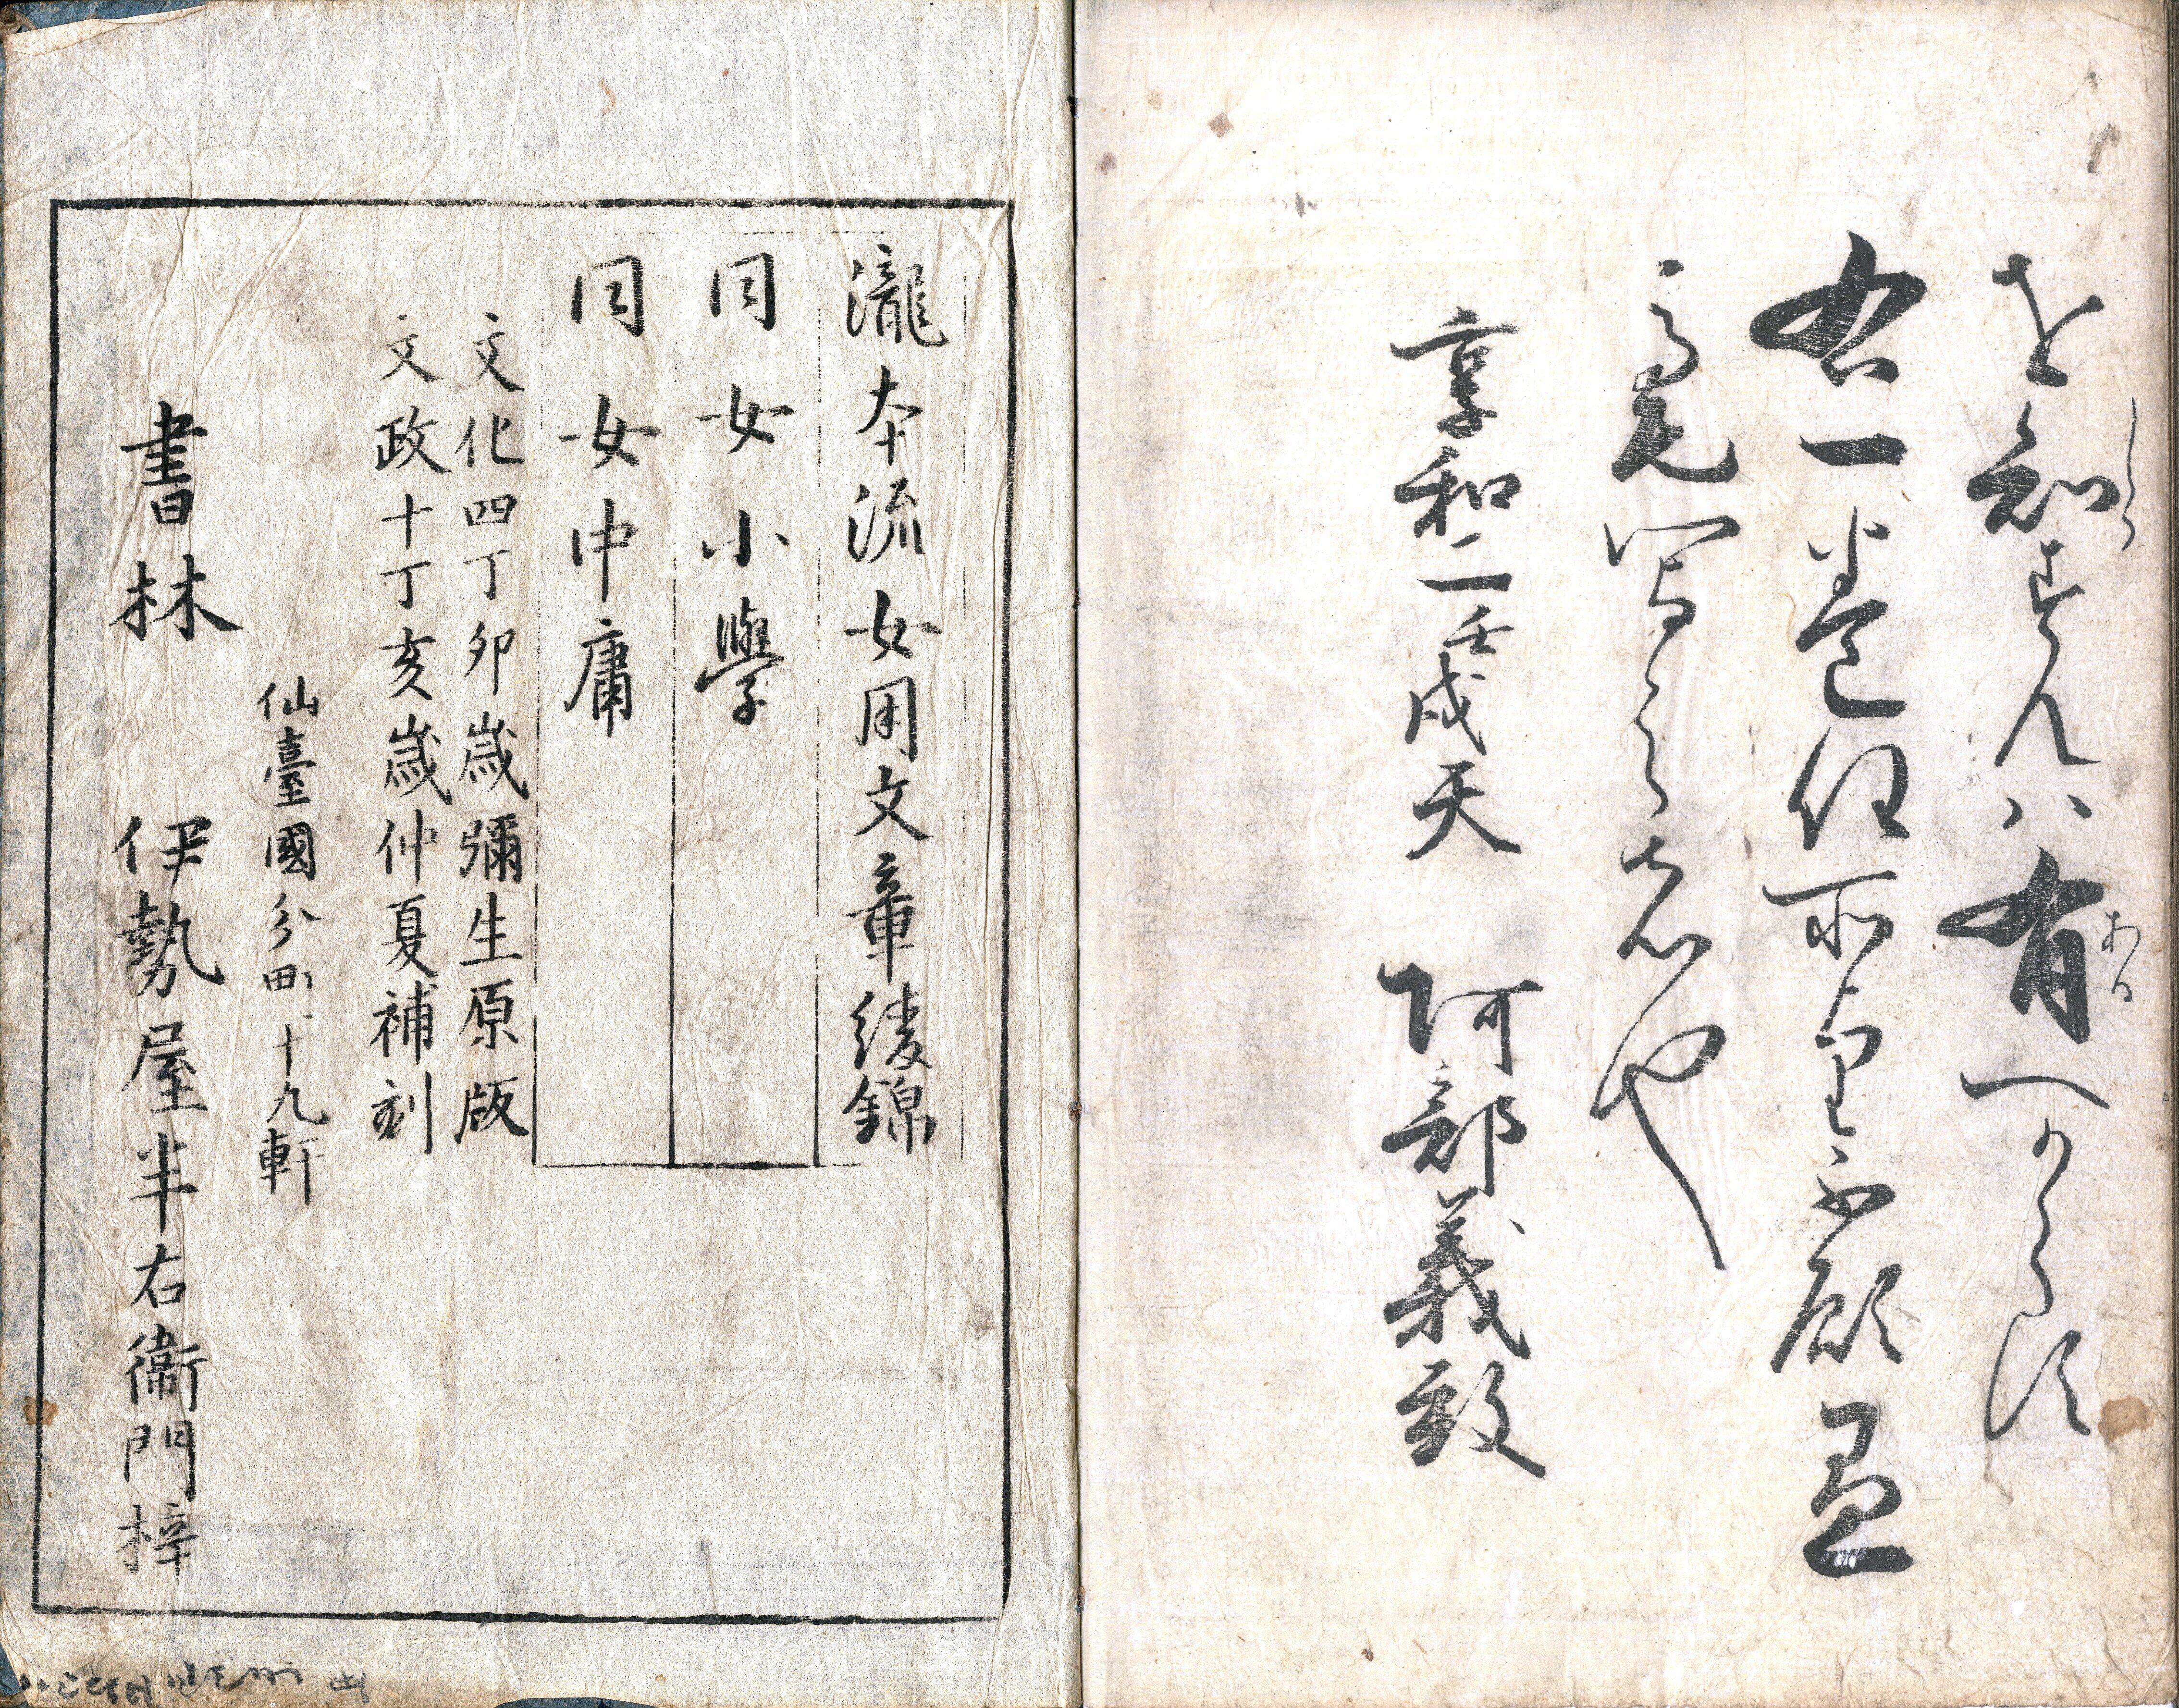 を知すんハ有へからす
しら
ある
右一巻任所望不顧
毫写之者也
享和二壬戌天　阿部義致
瀧本流女用文章綾錦
同女小學
同女中庸
文化四丁卯歳彌生原版
文政十丁亥歳仲夏補刻
仙臺國分町十九軒
書林　伊勢屋半右衞門梓